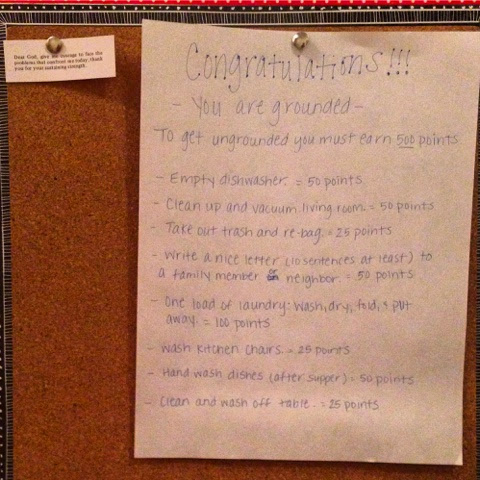 Dear God, give me courage to face the
problems that confront me today, thank
you for your sustaining strength.
Congratulations!!!
- You are grounded -
To get ungrounded you must earn 500 points
- Empty dishwasher. = 50 points
- Clean up and vacuum living room. = 50 points
- Take out trash and re-bag. = 25 points
- Write a nice letter (10 sentences at least) to
a family member or neighbor. = 50 points
- One load of laundry: wash, dry, fold, & put
away. = 100 points
- Wash kitchen chairs. = 25 points
- Hand wash dishes (after supper) = 50 points
- Clean and wash off table. = 25 points